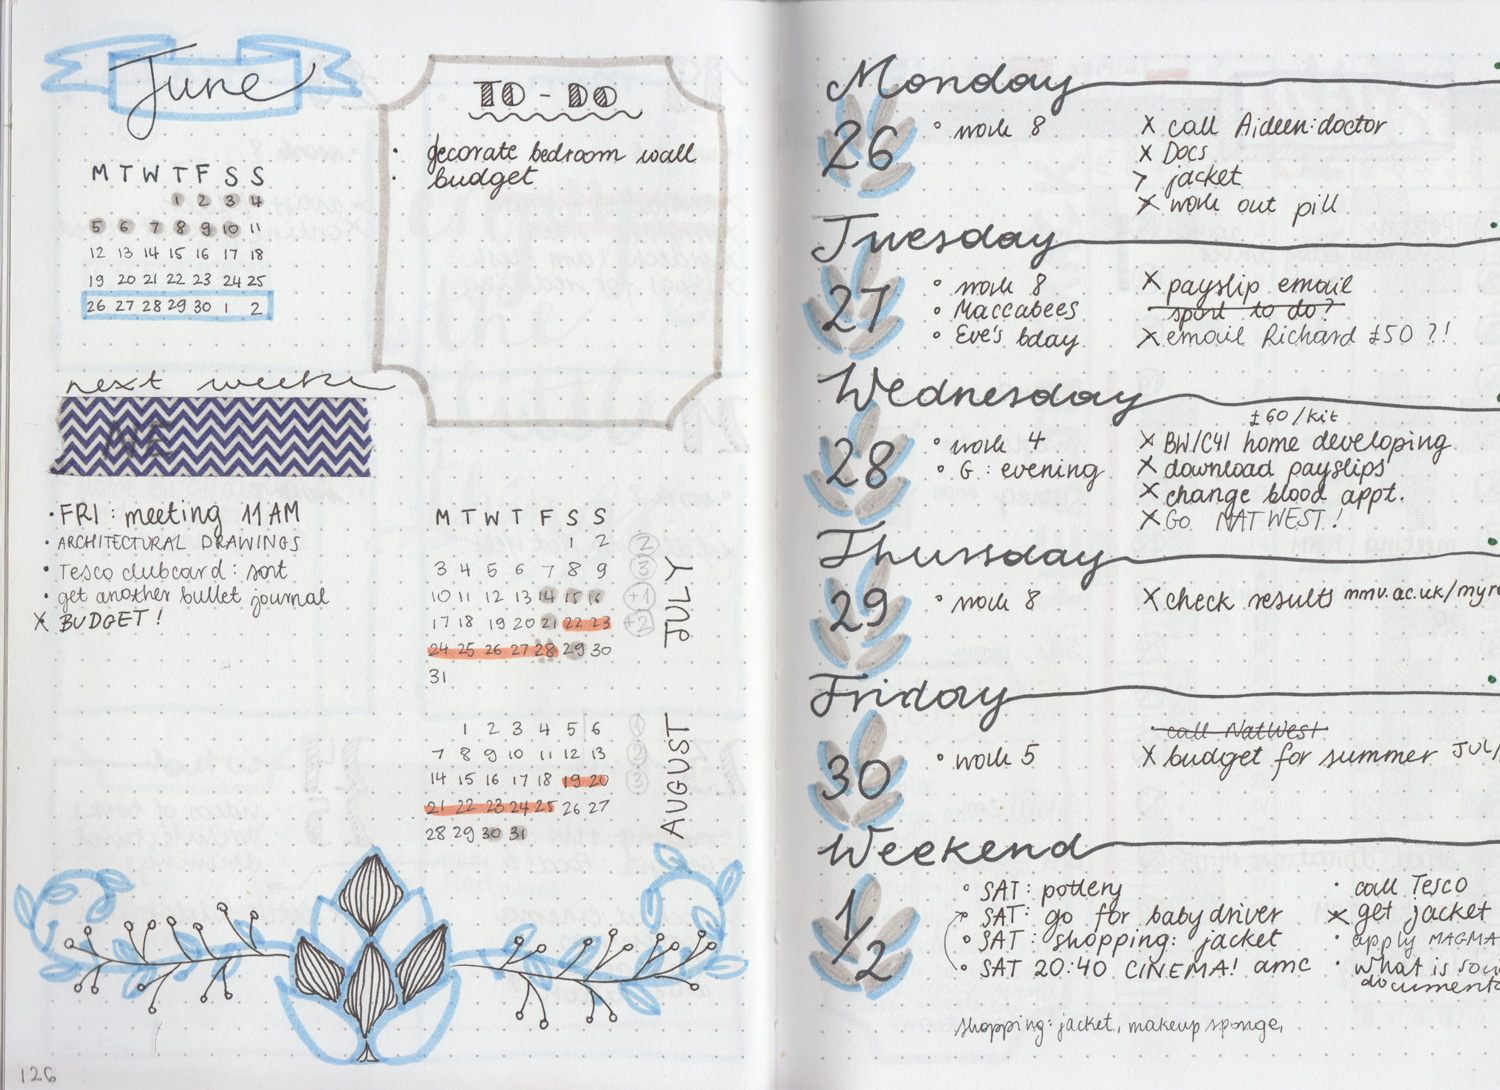 June
M T W T F S S
1 2 3 4
5 6 7 8 9 10 11
12 13 14 15 16 17 18
19 20 21 22 23 24 25
26 27 28 29 30 1 2
next week
• FRI: meeting 11 AM
• ARCHITECTURAL DRAWINGS
• Tesco clubcard: sort
• get another bullet journal
X BUDGET!
TO-DO
• decorate bedroom wall
• budget
M T W T F S S
1 2 (2)
3 4 5 6 7 8 9 (3)
10 11 12 13 14 15 16 (+1)
17 18 19 20 21 22 23 (+2)
24 25 26 27 28 29 30
31
JULY
1 2 3 4 5 6 (1)
7 8 9 10 11 12 13 (2)
14 15 16 17 18 19 20 (3)
21 22 23 24 25 26 27
28 29 30 31
AUGUST
126
Monday
26
° work 8
X call Aideen: doctor
X Docs
> jacket
X work out pill
Tuesday
27
° work 8
° Maccabees
° Eve's bday
X payslip email
sport to do?
X email Richard £50 ?!
Wednesday
28
° work 4
° G: evening
£60/kit
X BW/C41 home developing
X download payslips
X change blood appt.
X GO NATWEST!
Thursday
29
° work 8
X check results mmv.ac.uk/myre
Friday
30
° work 5
call NatWest
X budget for summer JUL/
Weekend
1/2
° SAT: pottery
° SAT: go for baby driver
° SAT: shopping: jacket
° SAT 20:40 CINEMA! amc
• call Tesco
X get jacket
• apply MAGMA
• what is soci
documenta
shopping: jacket, makeup sponge,